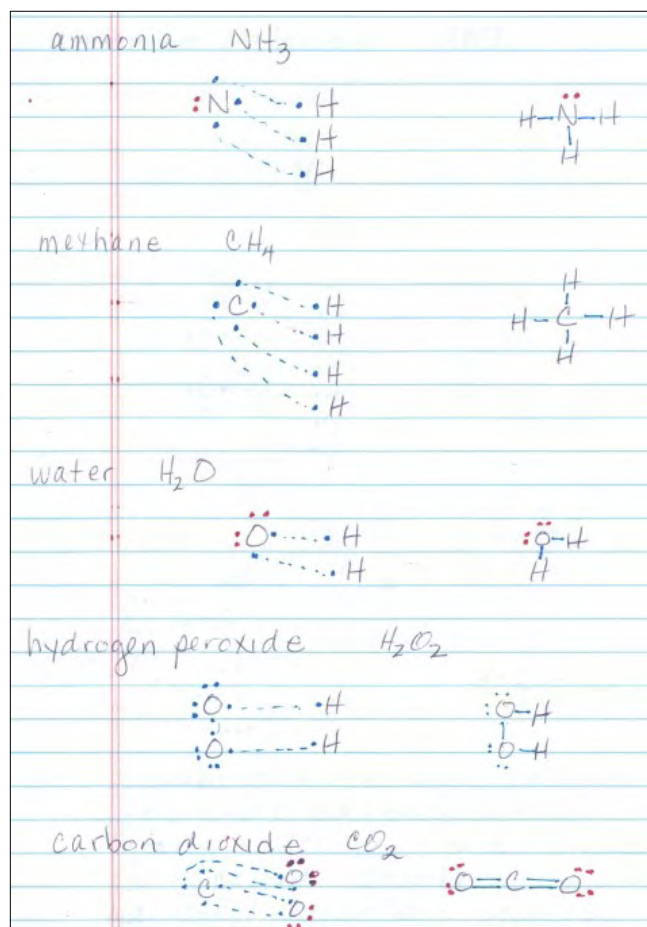 ammonia NH3
N H
H
H
H N H
H
methane CH4
C H
H
H
H
H
H C H
H
water H2O
O H
H
O H
H
hydrogen peroxide H2O2
O H
O H
O H
O H
carbon dioxide CO2
C O
O
O C O